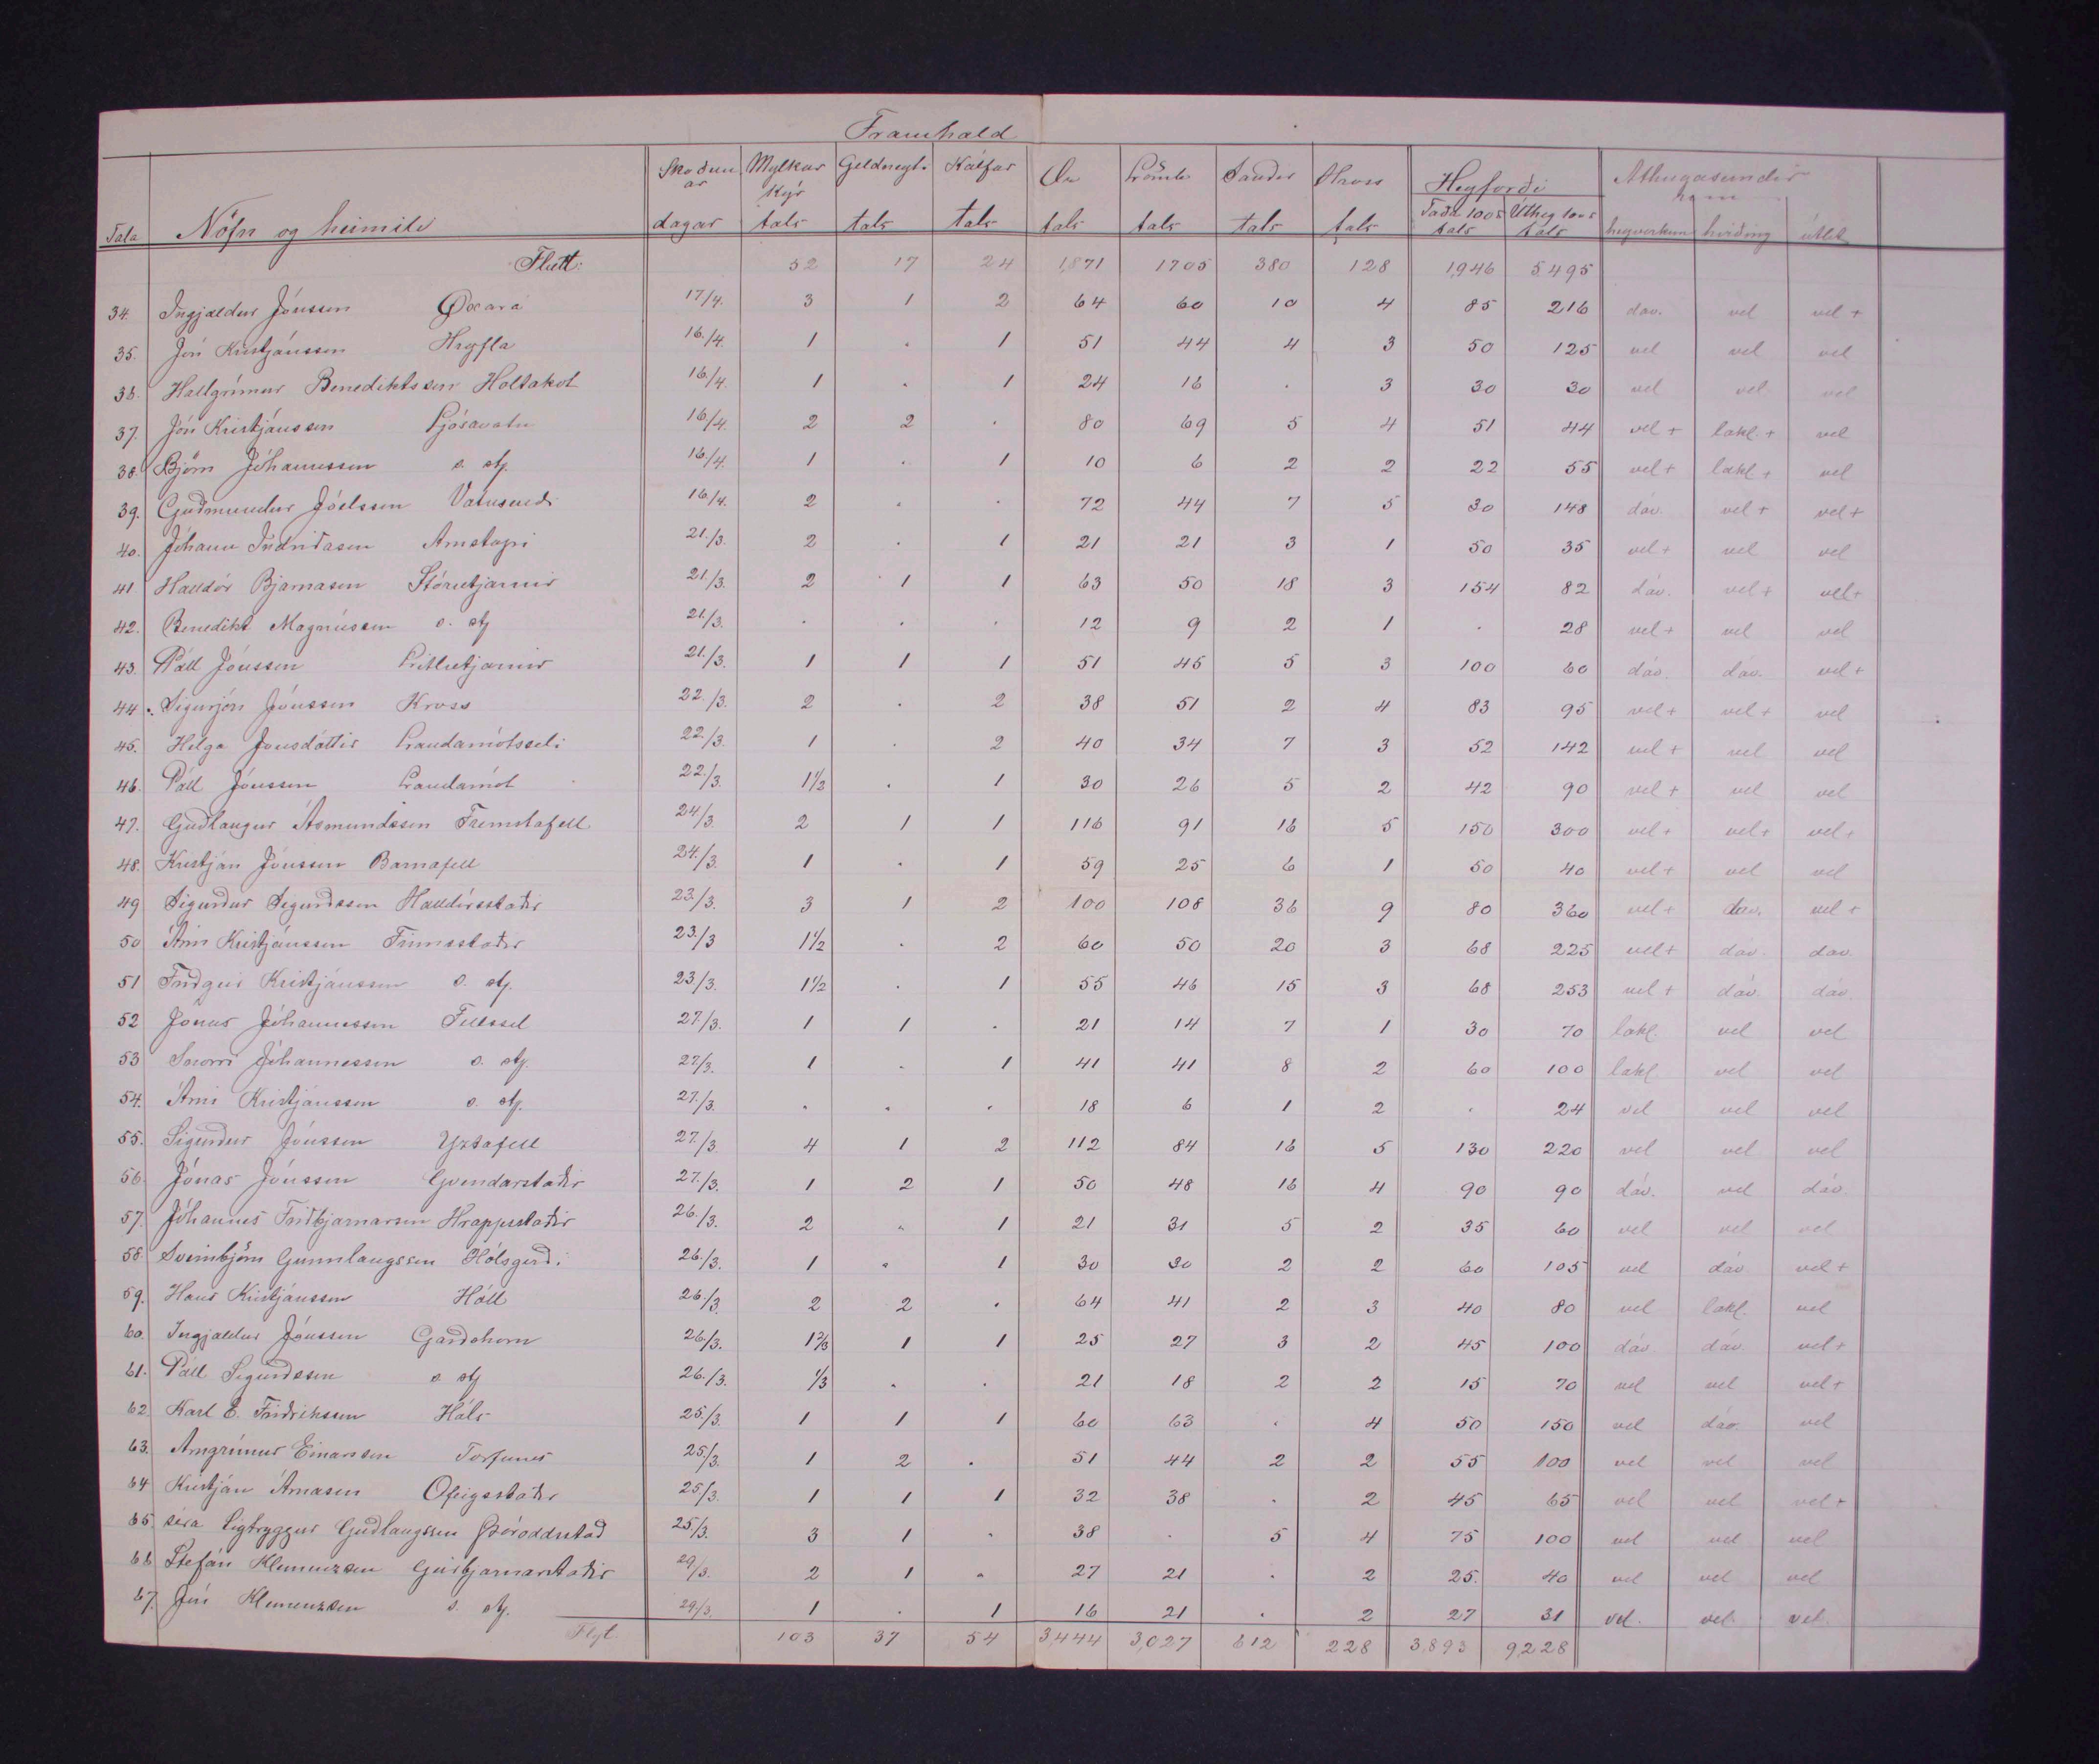 Framhald
Tala Nöfn og heimili Skoðunar dagar Mylkar kýr tals Geldneyti tals Kálfar tals Ær tals Lömb tals Sauðir tals Hross tals Heyforði Taða 100 tals Úthey 100 tals Athugasemdir heyverkun hirðing útlit
Flutt: 52 17 24 1,871 1705 380 128 1,946 5495
34. Ingjaldur Jónsson Öxará 17/4. 3 1 2 64 60 10 4 85 216 dáv. vel vel +
35. Jón Kristjánsson Hryfla 16./4. 1 . 1 51 44 4 3 50 125 vel vel vel
36. Hallgrímur Benediktsson Holtakot 16./4. 1 . 1 24 16 . 3 30 30 vel vel vel
37. Jón Kristjánsson Ljósavatn 16/4. 2 2 . 80 69 5 4 51 44 vel + lakl. + vel
38. Björn Jóhannsson s. st. 16/4. 1 . 1 10 6 2 2 22 55 vel + lakl + vel
39. Guðmundur Jóelsson Vatnsendi 16/4. 2 . . 72 44 7 5 30 148 dáv. vel + vel +
40. Jóhann Indriðason Arnstapi 21./3. 2 . 1 21 21 3 1 50 35 vel + vel vel
41 Halldór Bjarnason Stórutjarnir 21./3. 2 1 1 63 50 18 3 154 82 dáv. vel + vel +
42. Benedikt Magnússon s. st 21/3. . . . 12 9 2 1 . 28 vel + vel vel
43. Páll Jónsson Litlutjarnir 21./3. 1 1 1 51 45 5 3 100 60 dáv. dáv. vel +
44. Sigurjón Jónsson Kross 22./3. 2 . 2 38 51 2 4 83 95 vel + vel + vel
45. Helga Jónsdóttir Landamótssel 22./3. 1 . 2 40 34 7 3 52 142 vel + vel vel
46. Páll Jónsson Landamót 22./3. 1½ . 1 30 26 5 2 42 90 vel + vel vel
47. Guðlaugur Ásmundsson Fremstafell 24/3. 2 1 1 116 91 16 5 150 300 vel + vel + vel +
48. Kristján Jónsson Barnafell 24./3. 1 . 1 59 25 6 1 50 40 vel + vel vel
49 Sigurður Sigurðsson Halldórsstaðir 23./3. 3 1 2 100 108 36 9 80 360 vel + dáv. vel +
50 Árni Kristjánsson Finnsstaðir 23./3 1½ . 2 60 50 20 3 68 225 vel + dáv. dáv.
51 Friðgeir Kristjánsson s. st. 23./3. 1½ . 1 55 46 15 3 68 253 vel + dáv. dáv.
52 Jónas Jóhannesson Fellssel 27/3. 1 1 . 21 14 7 1 30 70 lakl. vel vel
53 Snorri Jóhannesson s. st. 27/3. 1 . 1 41 41 8 2 60 100 lakl. vel vel
54. Árni Kristjánsson s. st. 27./3. . . . 18 6 1 2 . 24 vel vel vel
55. Sigurður Jónsson Yztafell 27./3. 4 1 2 112 84 16 5 130 220 vel vel vel
56. Jónas Jónsson Gvendarstaðir 27./3. 1 2 1 50 48 16 4 90 90 dáv. vel dáv.
57. Jóhannes Friðbjarnarson Hrappsstaðir 26./3. 2 . 1 21 31 5 2 35 60 vel vel vel
58. Sveinbjörn Gunnlaugsson Hólsgerði 26./3. 1 . 1 30 30 2 2 60 105 vel dáv vel +
59. Hans Kristjánsson Hóll 26./3. 2 2 . 64 41 2 3 40 80 vel lakl. vel
60. Ingjaldur Jónsson Garðshorn 26./3. 1⅔ 1 1 25 27 3 2 45 100 dáv. dáv. vel +
61. Páll Sigurðsson s. st 26./3. ⅓ . . 21 18 2 2 15 70 vel vel vel +
62. Karl E. Friðriksson Háls 25./3. 1 1 1 60 63 . 4 50 150 vel dáv. vel
63. Arngrímur Einarsson Torfunes 25./3. 1 2 . 51 44 2 2 55 100 vel vel vel
64 Kristján Árnason Ófeigsstaðir 25/3. 1 1 1 32 38 . 2 45 65 vel vel vel +
65 séra Sigtryggur Guðlaugsson Þóroddstað 25/3. 3 1 . 38 . 5 4 75 100 vel vel vel
66 Stefán Klemenzson Geirbjarnarstaðir 29/3. 2 1 . 27 21 . 2 25. 40 vel vel vel
67. Jón Klemenzson s. st. 29./3. 1 . 1 16 21 . 2 27 31 vel. vel. vel.
Flyt. 103 37 54 3,444 3,027 612 228 3,893 9,228